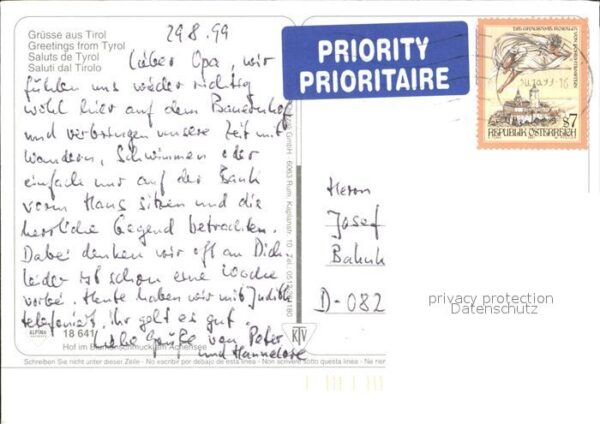 Grüsse aus Tirol
Greetings from Tyrol
Saluts de Tyrol
Saluti dal Tirolo
29.8.99
Lieber Opa, wir
fühlen uns wieder richtig
wohl hier auf dem Bauernhof
und verbringen unsere Zeit mit
Wandern, Schwimmen oder
einfach nur auf der Bank
vorm Haus sitzen und die
herrliche Gegend betrachten.
Dabei denken wir oft an Dich
leider ist schon eine Woche
vorbei. Heute haben wir mit Judith
telefoniert. Ihr geht es gut.
Liebe Grüße von Peter
und Hannelore
ALPINA
18 641
Hof im Blumenschmuck am Achensee
Schreiben Sie nicht unter dieser Zeile - No escribir por debajo de esta linea - Non scrivere sotto questa linea - Ne rien
GmbH, 6063 Rum, Kaplanstr. 10
KTV
PRIORITY
PRIORITAIRE
VON
S7
REPUBLIK ÖSTERREICH
Herrn
Josef
Bahnh
D-082
privacy protection
Datenschutz